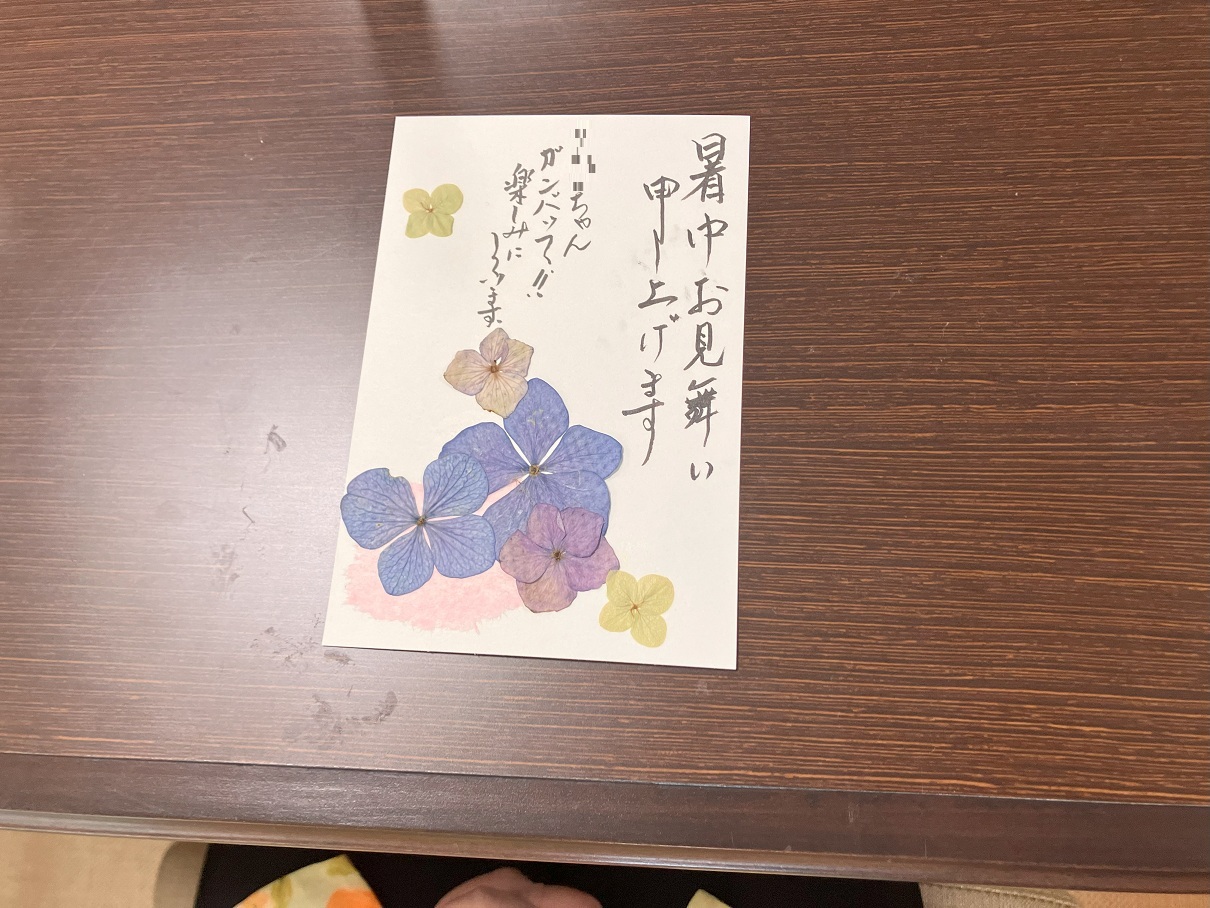 暑中お見舞い
申し上げます
ちゃん
ガンバッて!!
楽しみに
しています